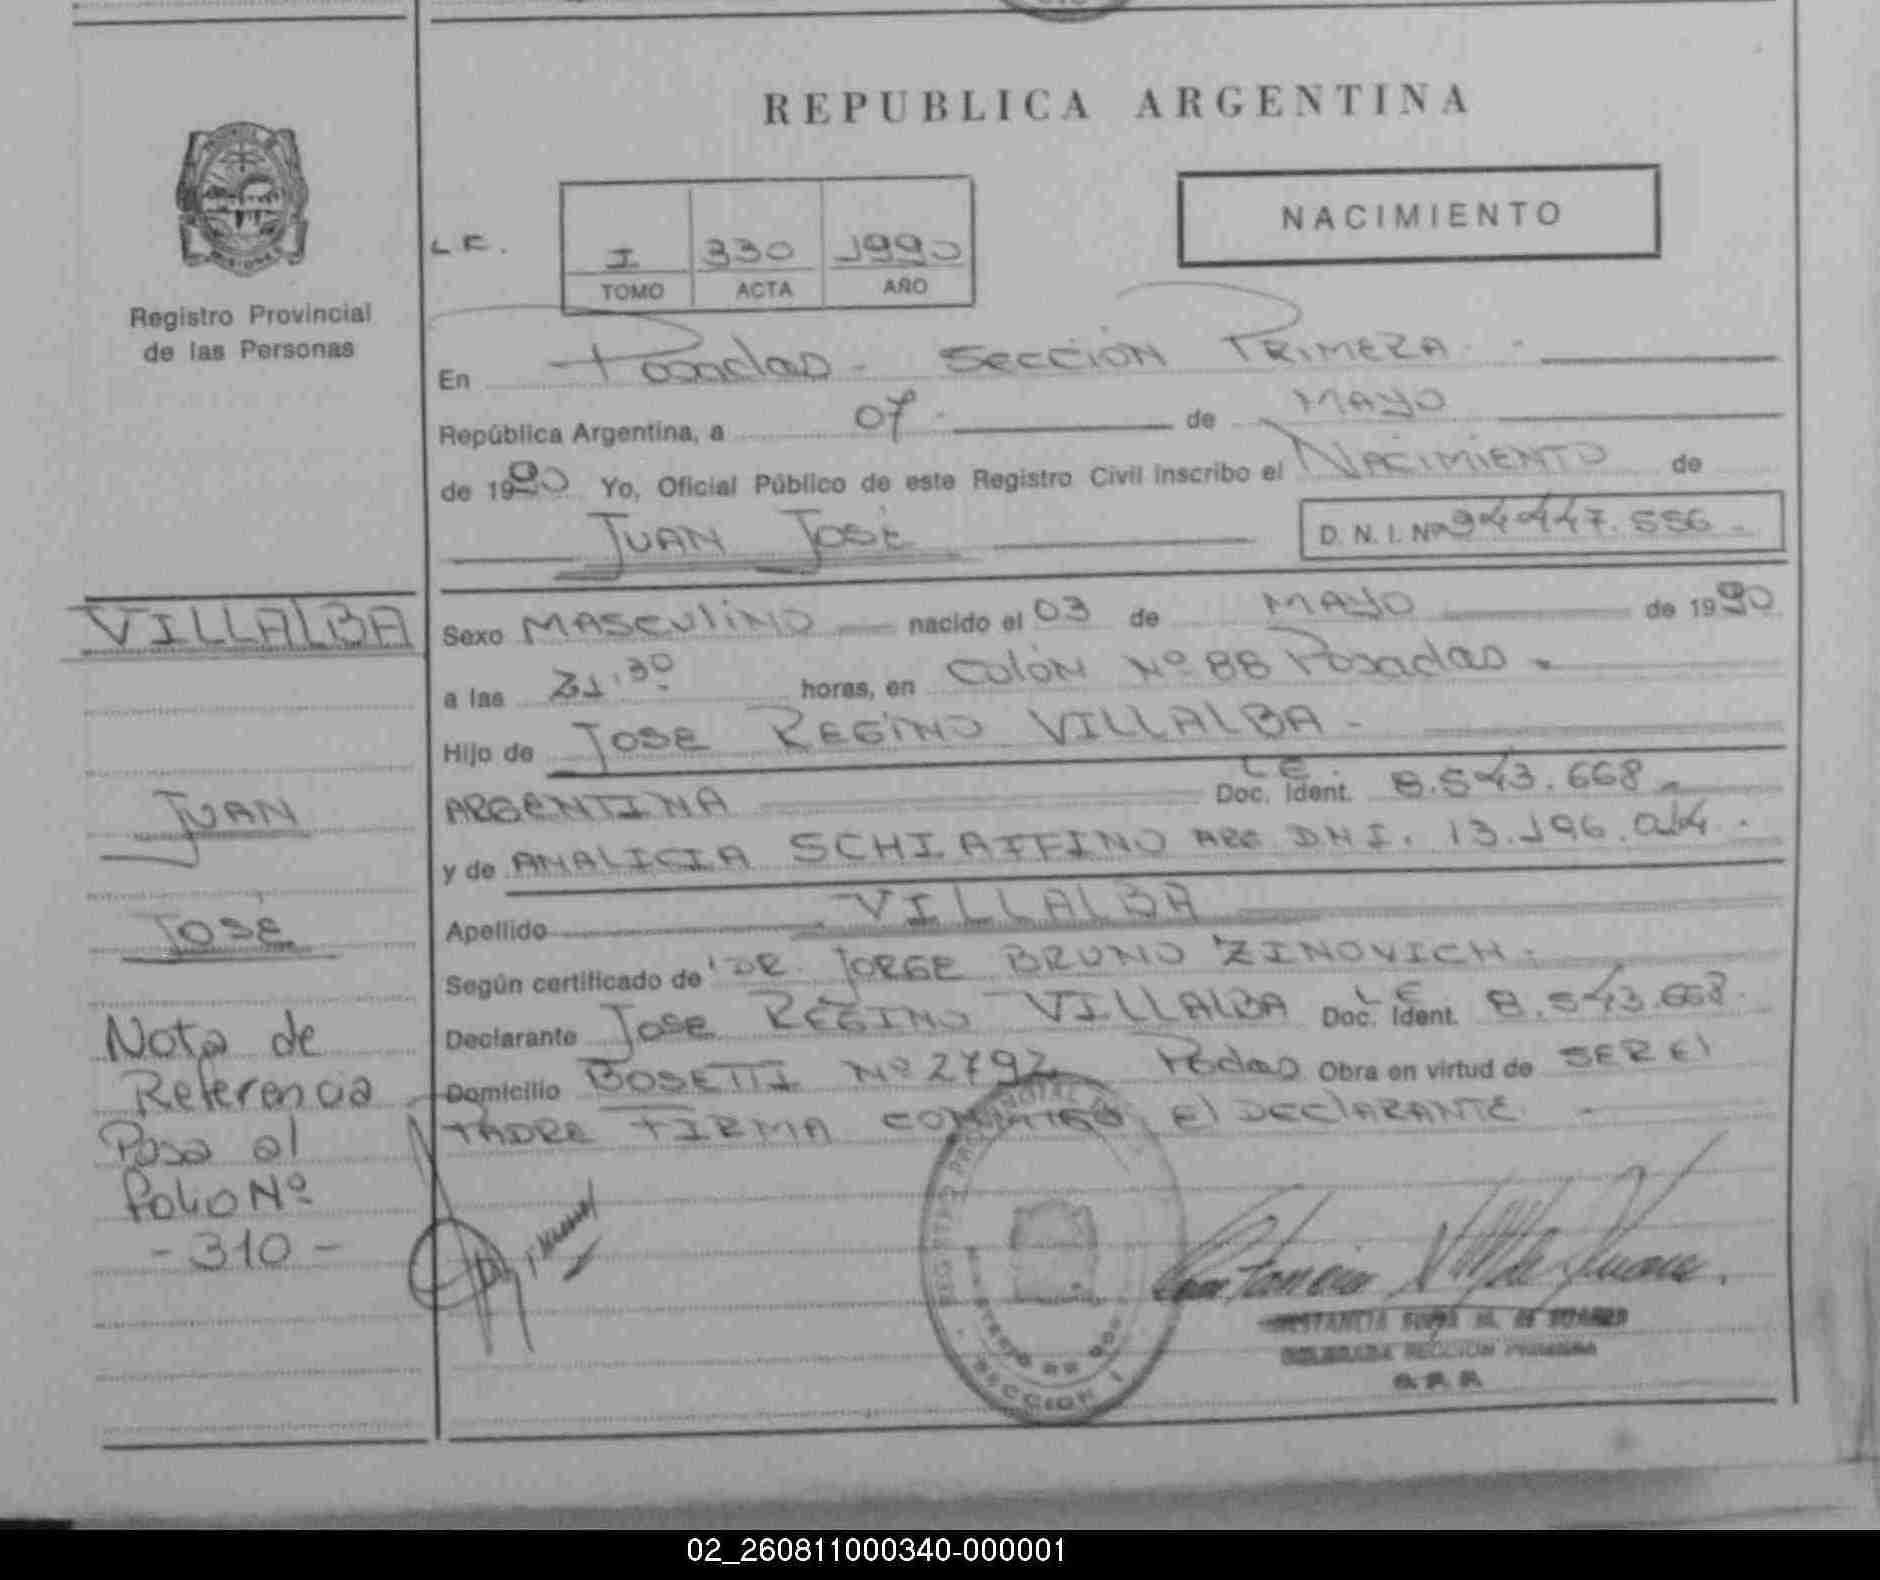 REPUBLICA ARGENTINA
NACIMIENTO
I 330 1990
TOMO ACTA AÑO
Registro Provincial
de las Personas
En Posadas - Sección PRIMERA -
República Argentina, a 07 - de MAYO
de 1990 Yo, Oficial Público de este Registro Civil inscribo el NACIMIENTO de
JUAN JOSÉ
D. N. I. Nº 34.447.556 -
VILLALBA
Sexo MASCULINO nacido el 03 de MAYO de 1990
a las 21.30 horas, en Colón Nº 88 Posadas -
Hijo de JOSE REGINO VILLALBA -
ARGENTINA L E. Doc. Ident. 8.543.668 -
y de ANALICIA SCHIAFFINO ARG. DNI. 13.196.014.
Apellido VILLALBA
Según certificado de DR. JORGE BRUNO ZINOVICH.
Declarante JOSE REGINO VILLALBA L E Doc. Ident. 8.543.668.
Domicilio BOSETTI Nº 2792 Pdas Obra en virtud de SER El
PADRE FIRMA CONMIGO El DEClARANTE. -
JUAN
JOSÉ
Nota de
Referencia
Pasa al
Folio Nº
- 310 -
SECCION 1
DELEGADA SECCION PRIMERA
02_260811000340-000001